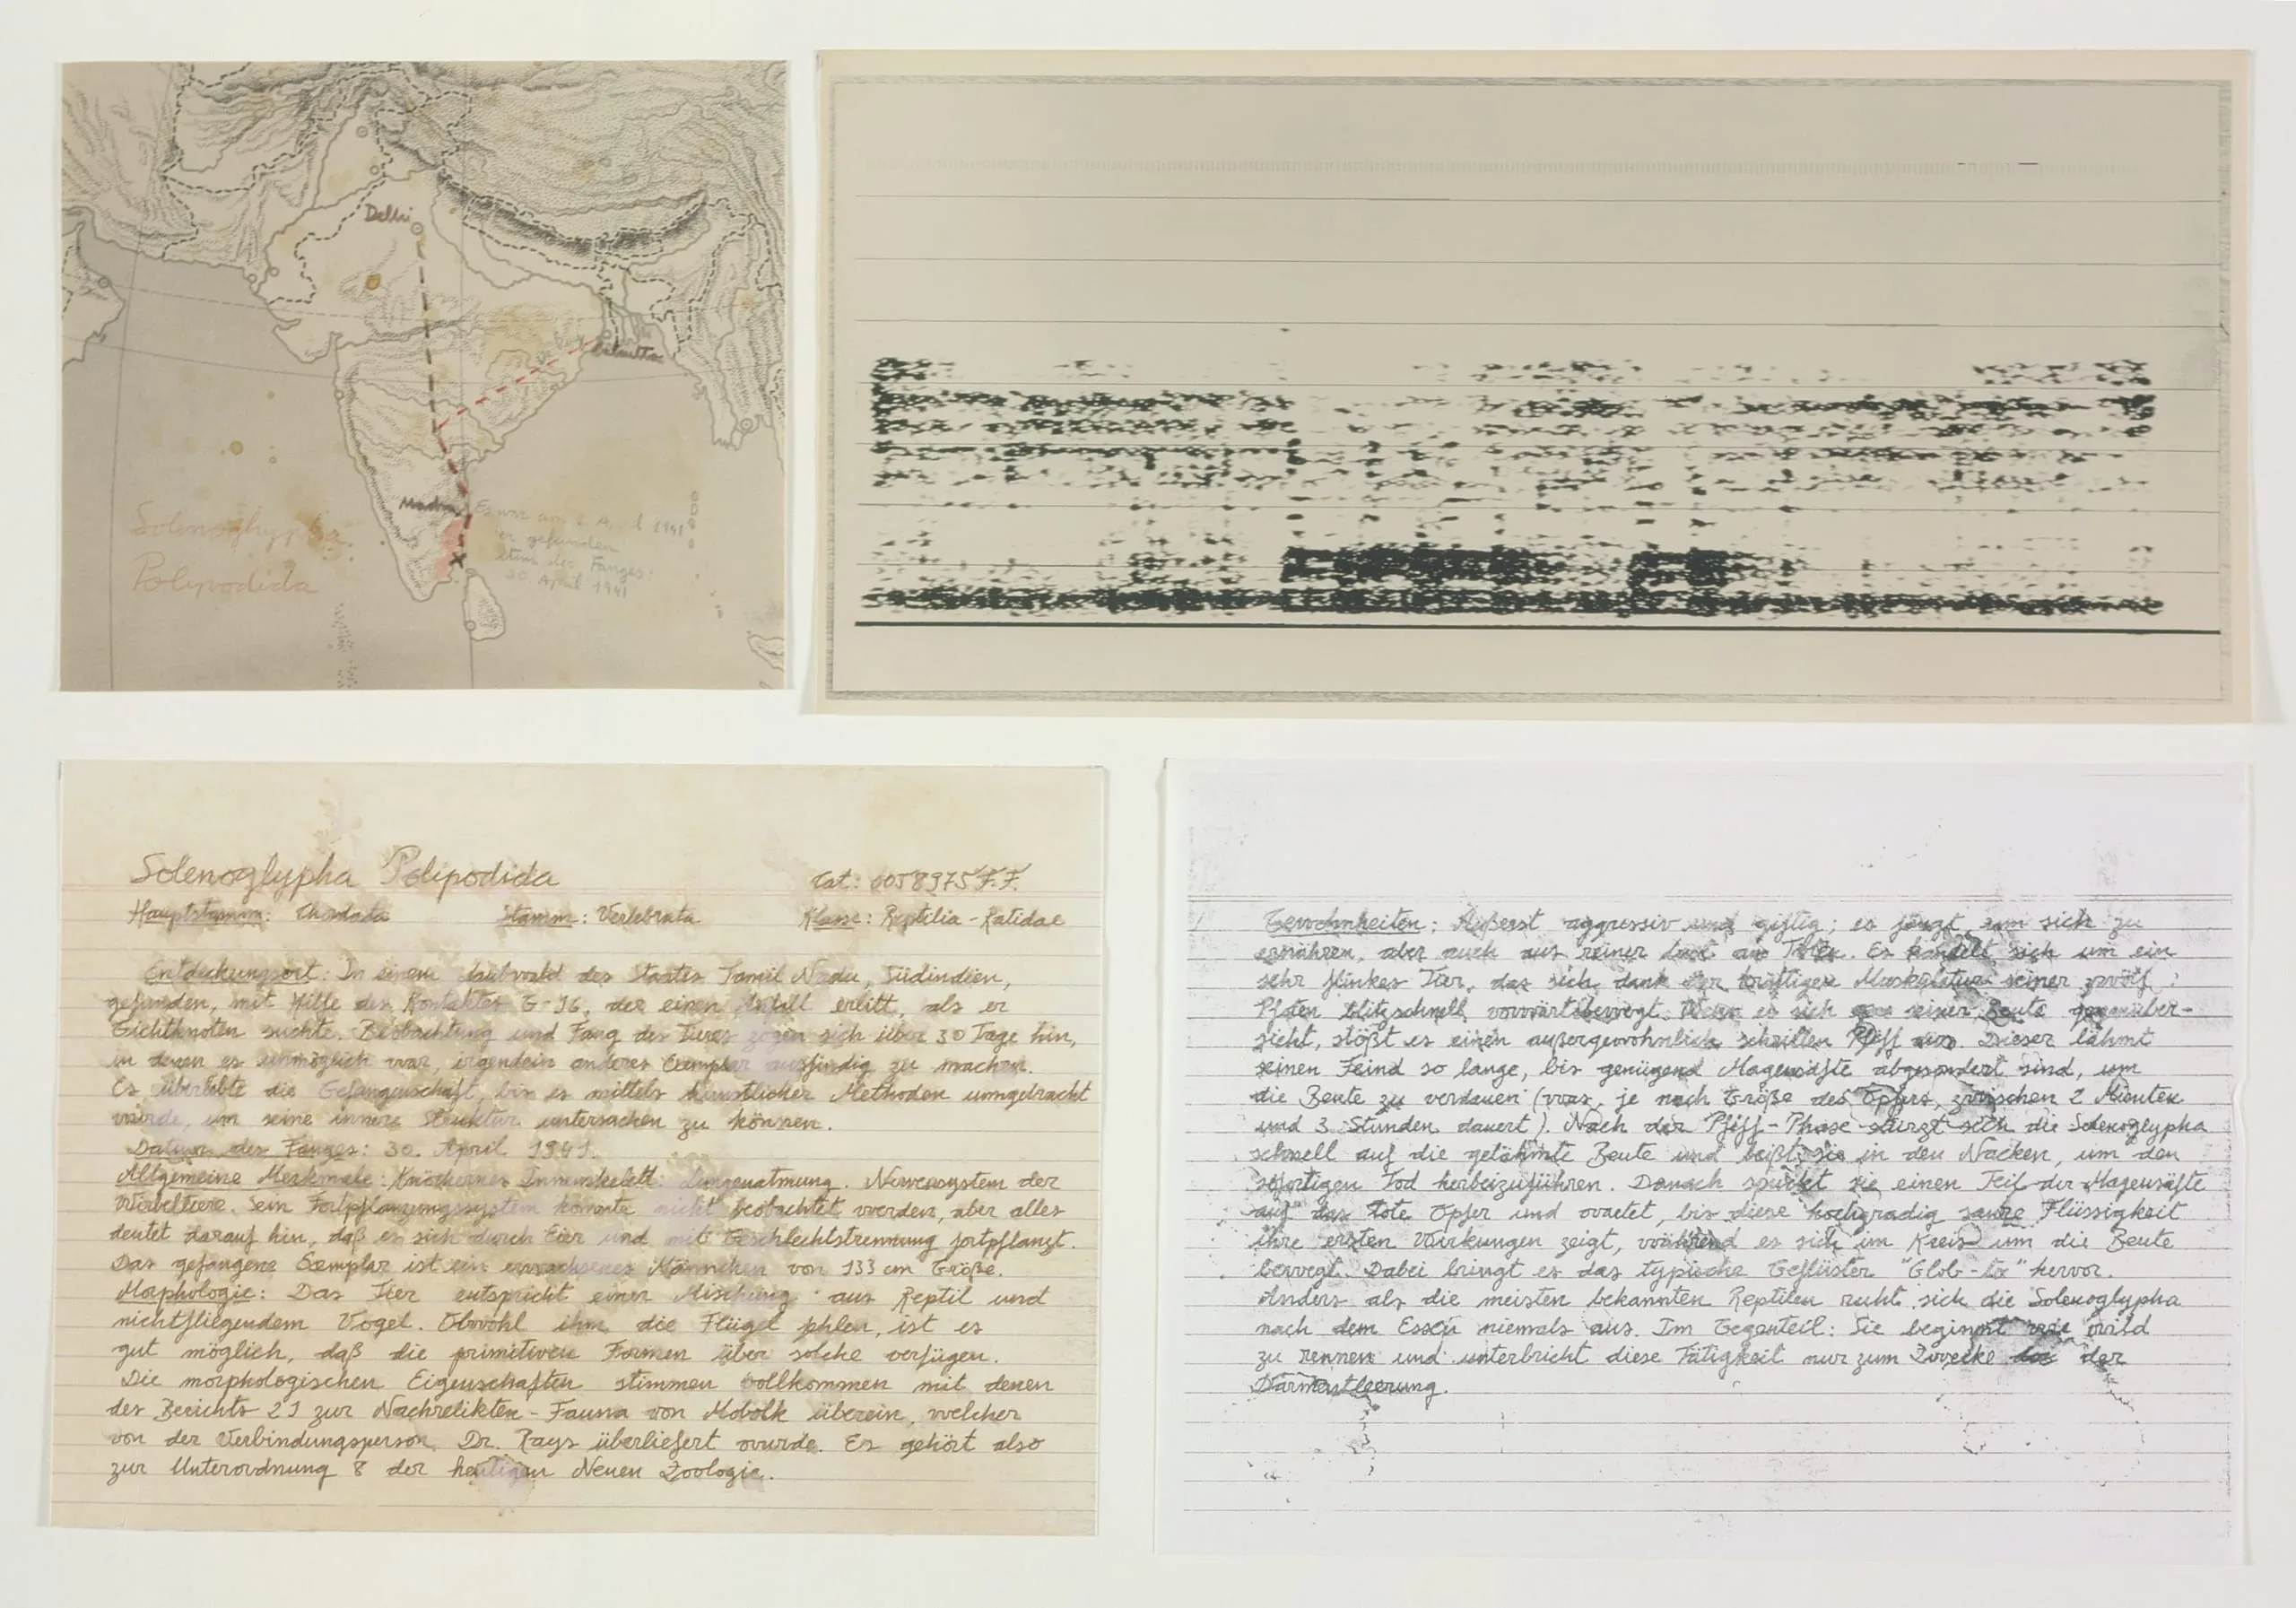 Delhi
Calcutta
Madras
Solenoghypha
Polipodida
Es war am 1 April 1941
er gefunden
des Fanges:
30 April 1941
Solenoglypha Polipodida
Cat: 0058975 F.F.
Hauptstamm: Chordata Stamm: Vertebrata Klasse: Reptilia - Ratidae
Entdeckungsort: In einem Laubwald des Staates Tamil Nadu, Südindien,
gefunden, mit Hilfe des Kontaktes G-16, der einen Anfall erlitt, als er
Gichtknoten suchte. Beobachtung und Fang des Tieres zogen sich über 30 Tage hin,
in denen es unmöglich war, irgendein anderes Exemplar ausfindig zu machen.
Es überlebte die Gefangenschaft, bis es mittels künstlicher Methoden umgebracht
wurde, um seine innere Struktur untersuchen zu können.
Datum des Fanges: 30. April 1941.
Allgemeine Merkmale: Knöchernes Innenskelett. Lungenatmung. Nervensystem der
Wirbeltiere. Sein Fortpflanzungssystem konnte nicht beobachtet werden, aber alles
deutet darauf hin, daß es sich durch Eier und mit Geschlechtstrennung fortpflanzt.
Das gefangene Exemplar ist ein erwachsenes Männchen von 133 cm Größe.
Morphologie: Das Tier entspricht einer Mischung aus Reptil und
nichtfliegendem Vogel. Obwohl ihm die Flügel fehlen, ist es
gut möglich, daß die primitiven Formen über solche verfügen.
Die morphologischen Eigenschaften stimmen vollkommen mit denen
des Berichts 21 zur Nachrelikten-Fauna von Mobolk überein, welcher
von der Verbindungsperson Dr. Rays überliefert wurde. Es gehört also
zur Unterordnung 8 der heutigen Neuen Zoologie.
Gewohnheiten: Äußerst aggressiv und giftig; es jagt, um sich zu
ernähren, aber auch aus reiner Lust am Töten. Es handelt sich um ein
sehr flinkes Tier, das sich dank der kräftigen Muskulatur seiner zwölf
Pfoten blitzschnell vorwärtsbewegt. Wenn es sich seiner Beute gegenüber-
sieht, stößt es einen außergewöhnlich schrillen Pfiff aus. Dieser lähmt
seinen Feind so lange, bis genügend Magensäfte abgesondert sind, um
die Beute zu verdauen (was, je nach Größe des Opfers, zwischen 2 Minuten
und 3 Stunden dauert). Nach der Pfiff-Phase stürzt sich die Solenoglypha
schnell auf die gelähmte Beute und beißt sie in den Nacken, um den
sofortigen Tod herbeizuführen. Danach spuckt sie einen Teil der Magensäfte
auf das tote Opfer und wartet, bis diese hochgradig saure Flüssigkeit
ihre ersten Wirkungen zeigt, während es sich im Kreis um die Beute
bewegt. Dabei bringt es das typische Geflüster "Glob-to" hervor.
Anders als die meisten bekannten Reptilien ruht sich die Solenoglypha
nach dem Essen niemals aus. Im Gegenteil: Sie beginnt wild
zu rennen und unterbricht diese Tätigkeit nur zum Zwecke der
Darmentleerung.